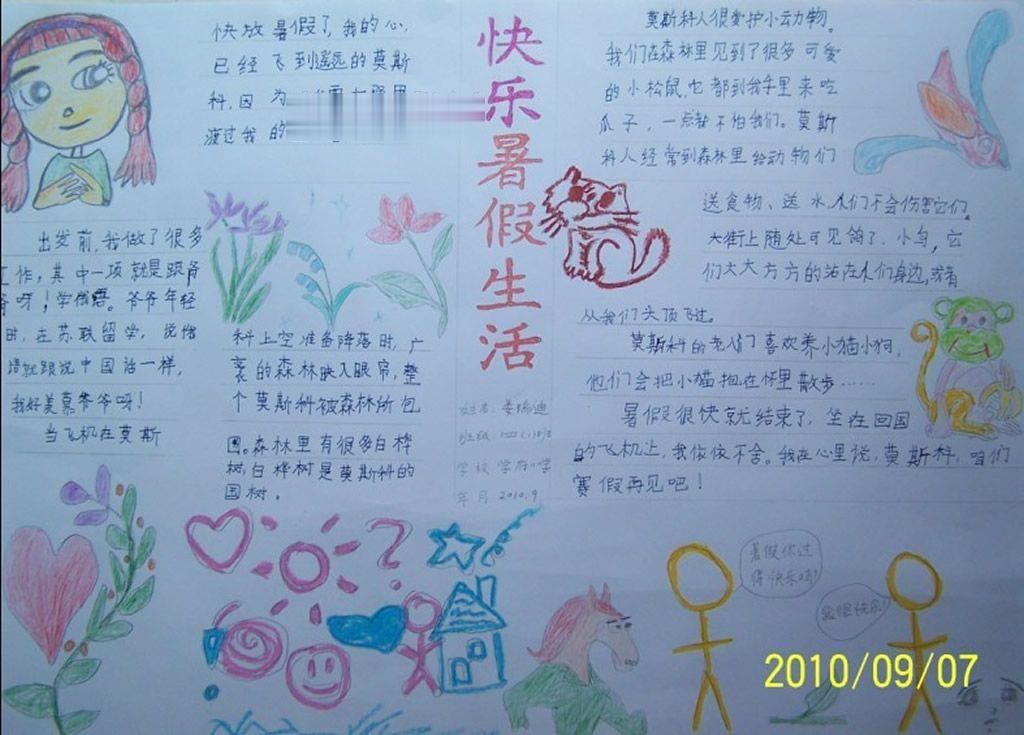 快乐暑假生活
快放暑假了,我的心,
已经飞到遥远的莫斯
科,因为
渡过我的
出发前,我做了很多
工作,其中一项就是跟爷
爷呀!学俄语。爷爷年轻
时,在苏联留学,说俄
语就跟说中国话一样,
我好羡慕爷爷呀!
当飞机在莫斯
科上空准备降落时,广
袤的森林映入眼帘,整
个莫斯科被森林所包
围。森林里有很多白桦
树,白桦树是莫斯科的
国树。
姓名:姜瑞迪
班级:四(1)班
学校 学府小学
年月 2010.9
莫斯科人很爱护小动物。
我们在森林里见到了很多可爱
的小松鼠,它都到我手里来吃
瓜子,一点都不怕我们。莫斯
科人经常到森林里给动物们
送食物、送水,人们不会伤害它们。
大街上随处可见鸽子、小鸟,它
们大大方方的站在人们身边,或者
从我们头顶飞过。
莫斯科的老人们喜欢养小猫小狗,
他们会把小猫抱在怀里散步……
暑假很快就结束了,坐在回国
的飞机上,我依依不舍。我在心里说,莫斯科,咱们
寒假再见吧!
暑假你过
得快乐吗?
我很快乐!
2010/09/07